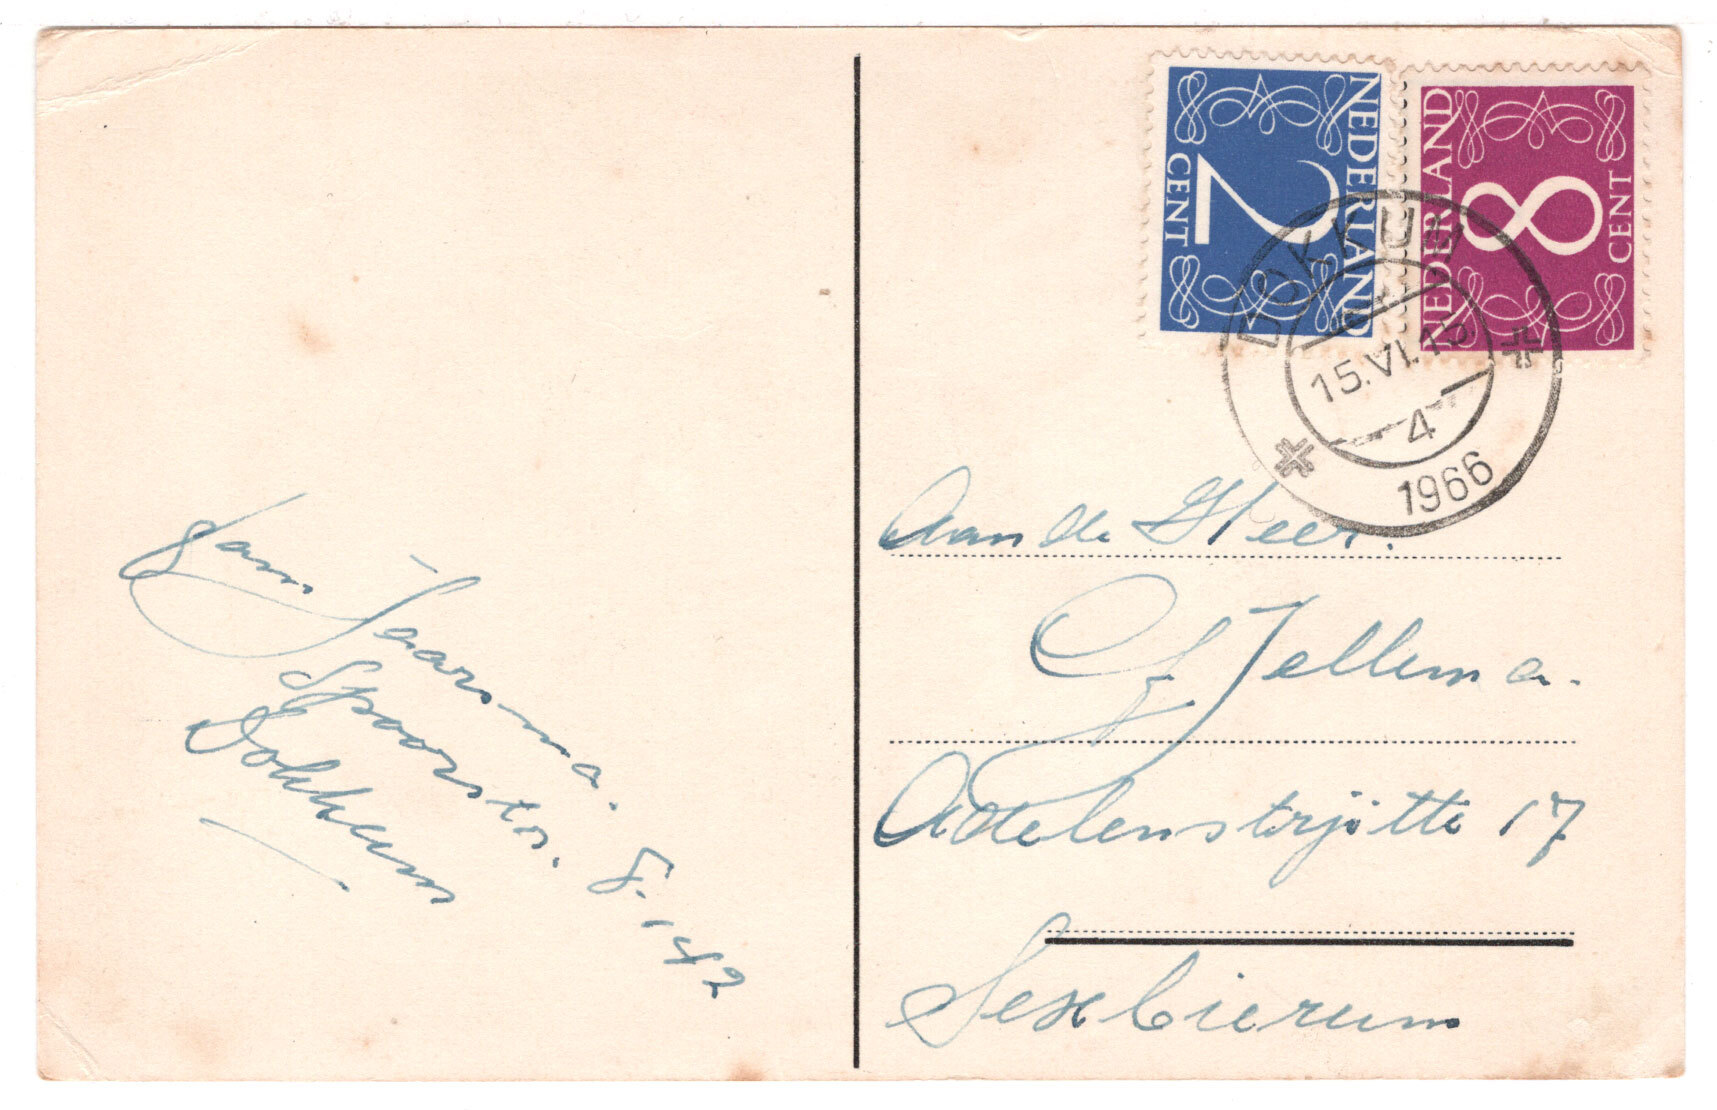 Fam Jaarsma.
Spoorstr. 8.142
Dokkum
NEDERLAND
2
CENT
NEDERLAND
8
CENT
DOKKUM
15.VI.
4
1966
Aan de Heer.
Jellema.
17
Sexbierum